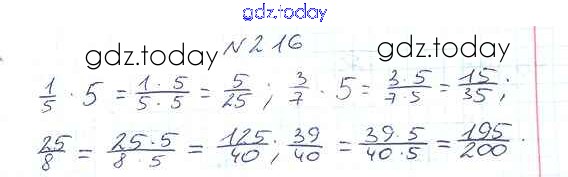 gdz.today
№216
gdz.today gdz.today
1/5 · 5 = 1·5/5·5 = 5/25; 3/7 · 5 = 3·5/7·5 = 15/35;
25/8 = 25·5/8·5 = 125/40; 39/40 = 39·5/40·5 = 195/200.